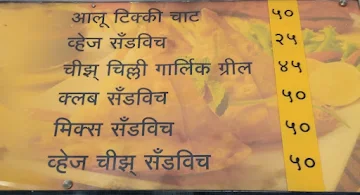 आलू टिक्की चाट ५०
व्हेज सँडविच २५
चीझ् चिल्ली गार्लिक ग्रील ४५
क्लब सँडविच ५०
मिक्स सँडविच ५०
व्हेज चीझ् सँडविच ५०